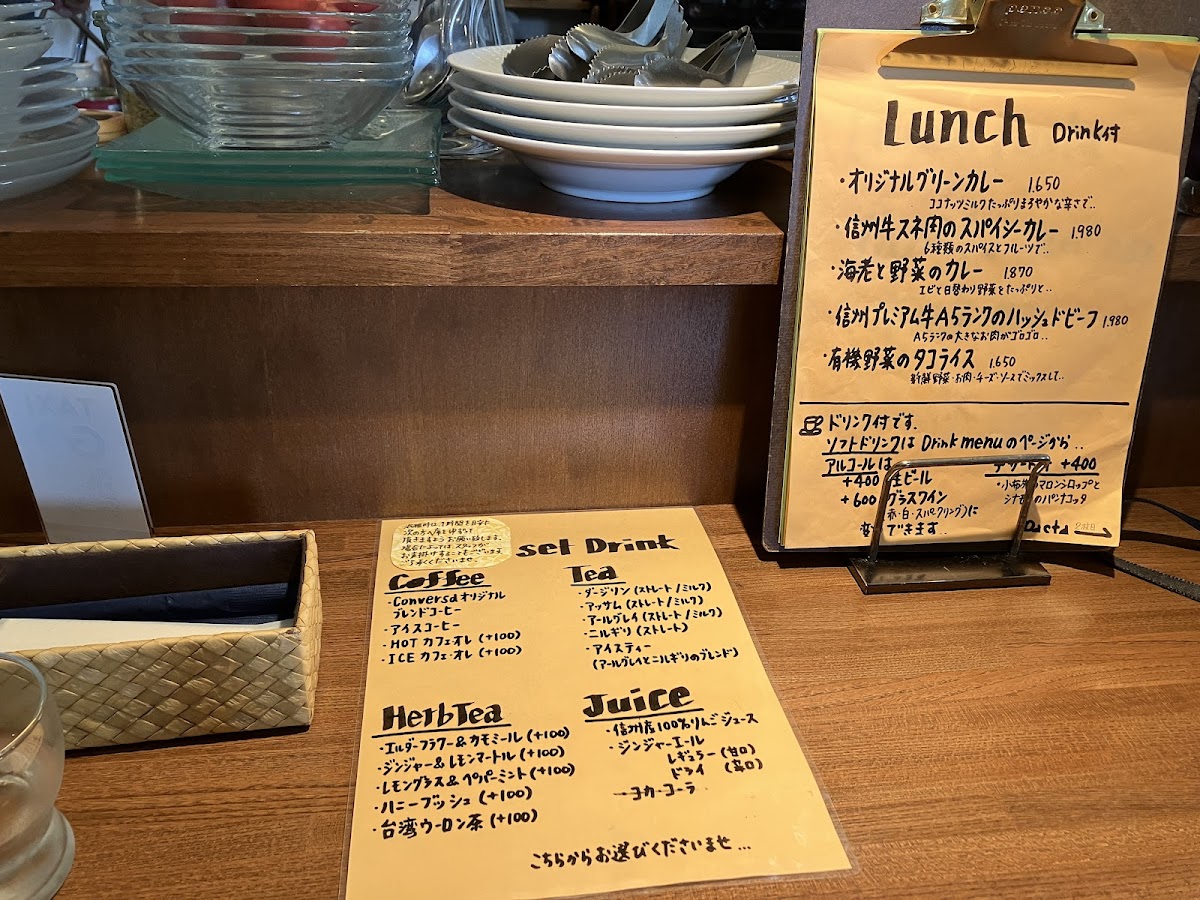 Lunch Drink付
・オリジナルグリーンカレー 1.650
ココナッツミルクたっぷりまろやかな辛さで..
・信州牛スネ肉のスパイシーカレー 1.980
6種類のスパイスとフルーツで..
・海老と野菜のカレー 1.870
エビと日替わり野菜をたっぷりと..
・信州プレミアム牛A5ランクのハッシュドビーフ 1.980
A5ランクの大きなお肉がゴロゴロ..
・有機野菜のタコライス 1.650
新鮮野菜・お肉・チーズ・ソースでミックスして..
ドリンク付です.
ソフトドリンクは Drink menuのページから..
アルコールは
+400 生ビール
+600 グラスワイン
赤・白・スパークリング)に
できます.
+400
・小布 マロンシロップと
のパンナコッタ
Pasta
set Drink
Coffee
・Conversaオリジナル
ブレンドコーヒー
・アイスコーヒー
・HOT カフェ・オレ (+100)
・ICE カフェ・オレ (+100)
Tea
・ダージリン (ストレート/ミルク)
・アッサム (ストレート/ミルク)
・アールグレイ (ストレート/ミルク)
・ニルギリ (ストレート)
・アイスティー
(アールグレイとニルギリのブレンド)
Herb Tea
・エルダーフラワー&カモミール (+100)
・ジンジャー&レモンマートル (+100)
・レモングラス&ペパーミント (+100)
・ハニーブッシュ (+100)
・台湾ウーロン茶 (+100)
Juice
・信州産100%りんごジュース
・ジンジャーエール
レギュラー (甘口)
ドライ (辛口)
コカ・コーラ
こちらからお選びくださいませ...